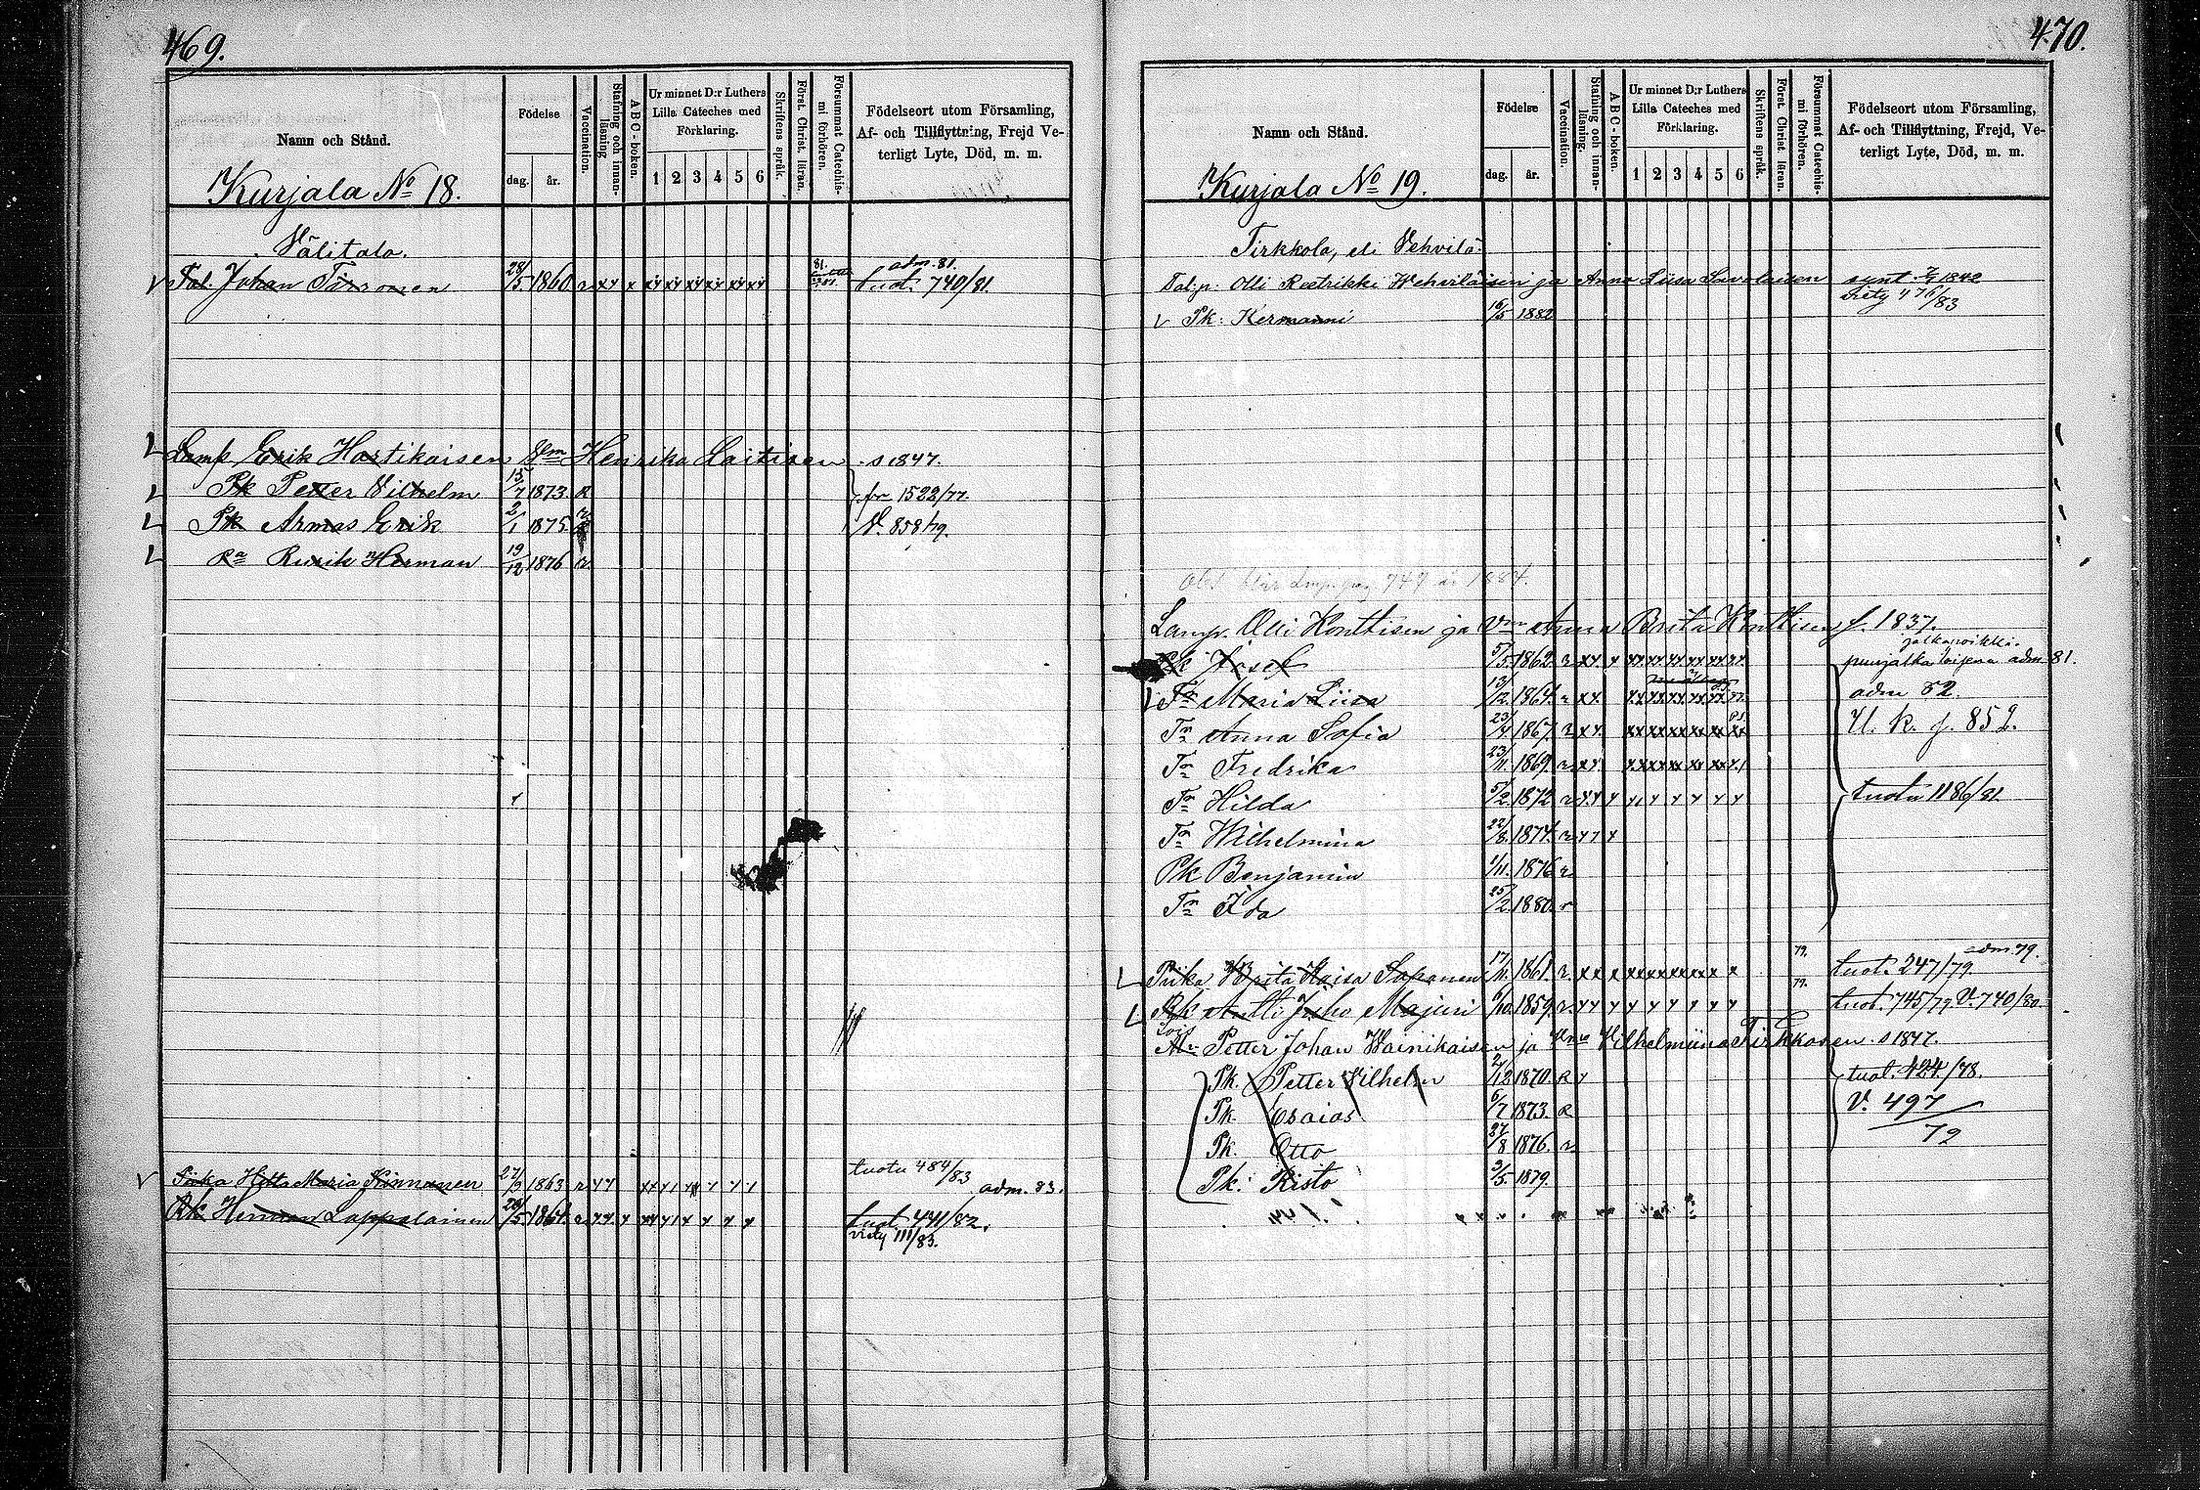 469.
Namn och Stånd.
Födelse
dag. år.
Vaccination.
Stafning och innanläsning
ABC-boken.
Ur minnet D:r Luthers Lilla Cateches med Förklaring.
1 2 3 4 5 6
Skriftens språk.
Först. Christ. läran.
Försummat Catechismi förhören.
Födelseort utom Församling,
Af- och Tillflyttning, Frejd Ve-
terligt Lyte, Död, m. m.
Kurjala No 18.
Välitalo.
adm. 81.
Johan 28/5 1860 tuot. 740/81.
Lamp Erik Hartikaisen Vm Henrika Laitinen s 1847.
Pk Petter Vilhelm 15/7 1873. R 1522/77.
Pk Armas Erik 2/1 1875. V. 858/79.
Rurik Herman 19/12 1876
Hetta Maria Kinnunen 27/9 1863 tuotu 484/83 adm. 83.
Rk Herman Lappalainen 28/5 1864. tuot. 441/82.
viety 111/83.
470.
Namn och Stånd.
Födelse
dag. år.
Vaccination.
Stafning och innanläsning.
ABC-boken.
Ur minnet D:r Luthers Lilla Cateches med Förklaring.
1 2 3 4 5 6
Skriftens språk.
Först. Christ. läran.
Försummat Catechismi förhören.
Födelseort utom Församling,
Af- och Tillflyttning, Frejd, Ve-
terligt Lyte, Död, m. m.
Kurjala No 19.
Tirkkola, eli Vehvilä.
Tal:p: Olli Reetrikki Wehviläisen ja Anna Liisa Savolaisen synt. 1842
viety 476/83
Pk: Hermanni 16/5 1882
749 1884.
Lamp. Olli Konttisen ja Vm Anna Brita Konttisen f. 1837.
Pk Josef 5/5 1862. adm 81.
Tr Maria Liisa 13/12 1864. adm 82.
Tr Anna Sofia 23/4 1867. 852.
Tr Fredrika 23/11 1869.
Tr Hilda 5/2 1872 tuotu 1186/81.
Tr Wilhelmina 22/8 1874.
Pk Benjamin 1/11 1876
Tr Ida 25/2 1880.
Piika Brita Kaisa Saponen 17/11 1861. 79. tuot. 247/79. adm 79.
Rk Antti Juho Majuri /10 1859. 79. tuot. 745/77. V. 740/80.
Lois
Petter Johan Wainikaisen ja Vmo Vilhelmiina Tirkkosen s 1847.
Pk. Petter Vilhelm 2/12 1870. R tuot. 424/78.
Pk. Esaias 6/7 1873. R V. 497/79
Pk. Otto 27/8 1876.
Pk: Risto 3/5 1879.